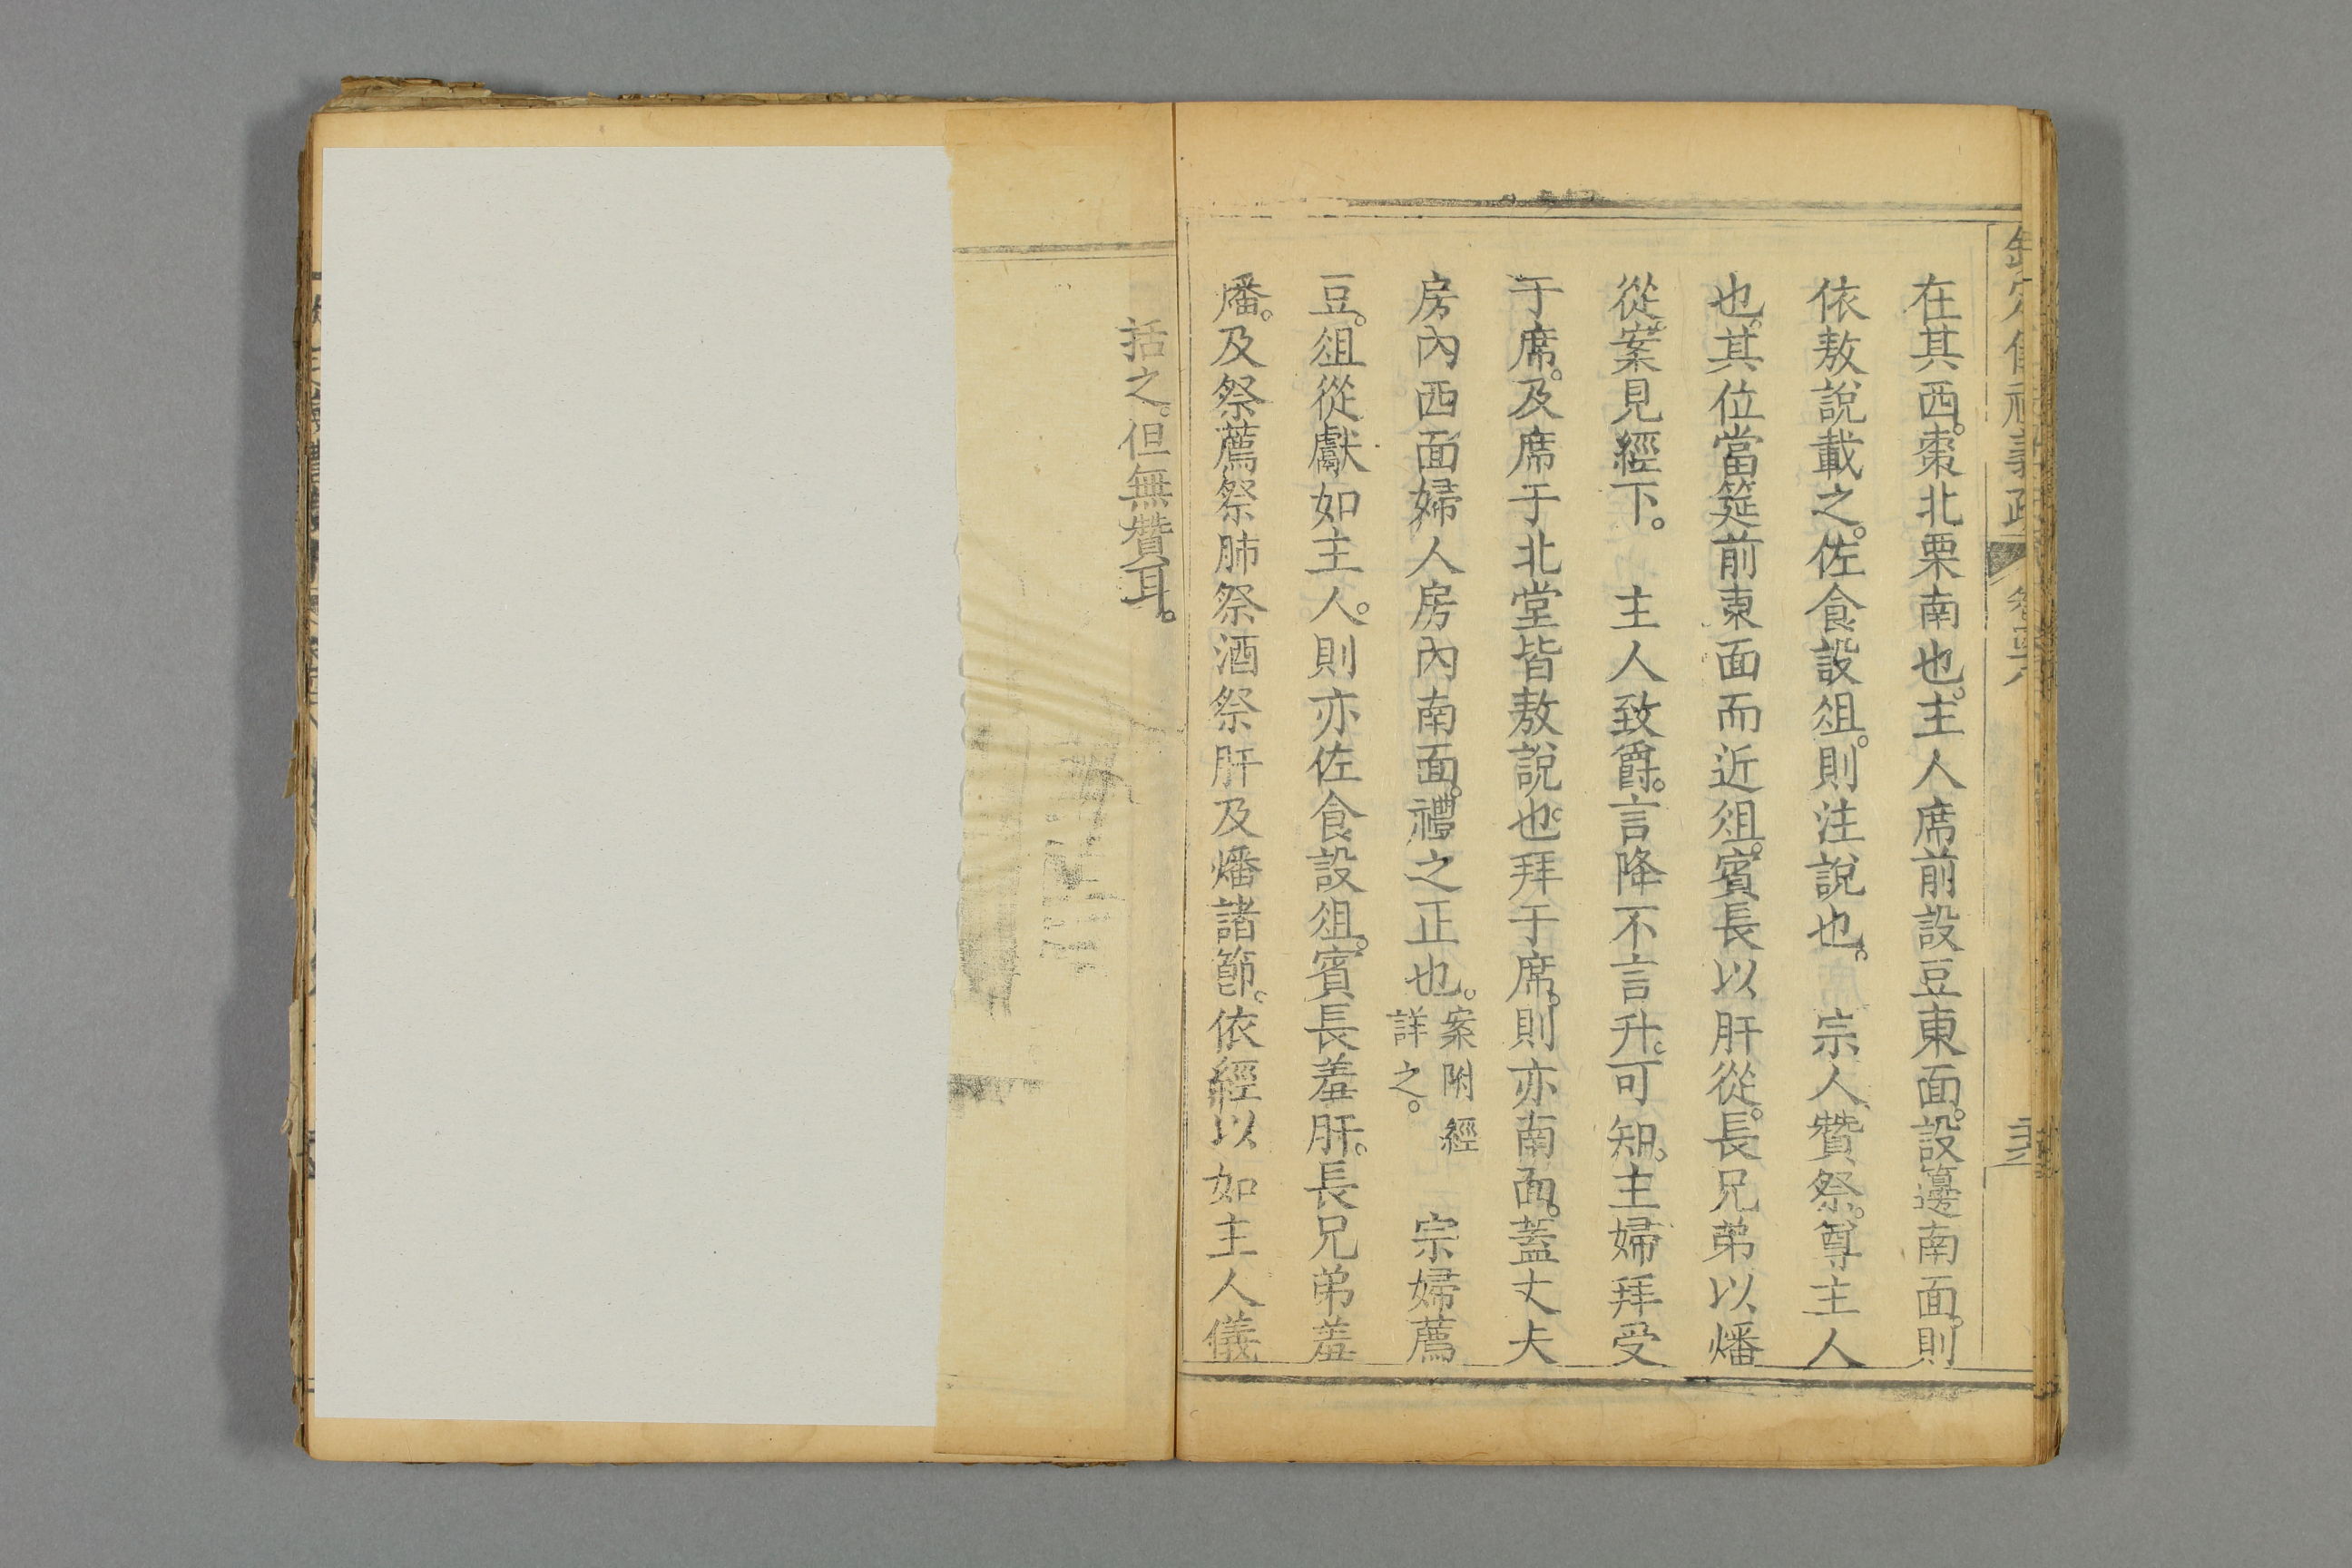 在其西。棗北栗南也。主人席前設豆東面。設籩南面。則
依敖說載之。佐食設俎。則注說也。　宗人贊祭。尊主人
也。其位當筵前東面而近俎。賓長以肝從。長兄弟以燔
從。案見經下。　主人致爵。言降不言升。可知。主婦拜受
于席。及席于北堂皆敖說也。拜于席。則亦南面。蓋丈夫
房內西面婦人房內南面。禮之正也。案附經詳之。　宗婦薦
豆。俎從獻如主人。則亦佐食設俎。賓長羞肝。長兄弟羞
燔。及祭薦祭肺祭酒祭肝及燔諸節。依經以如主人儀
括之。但無贊耳。